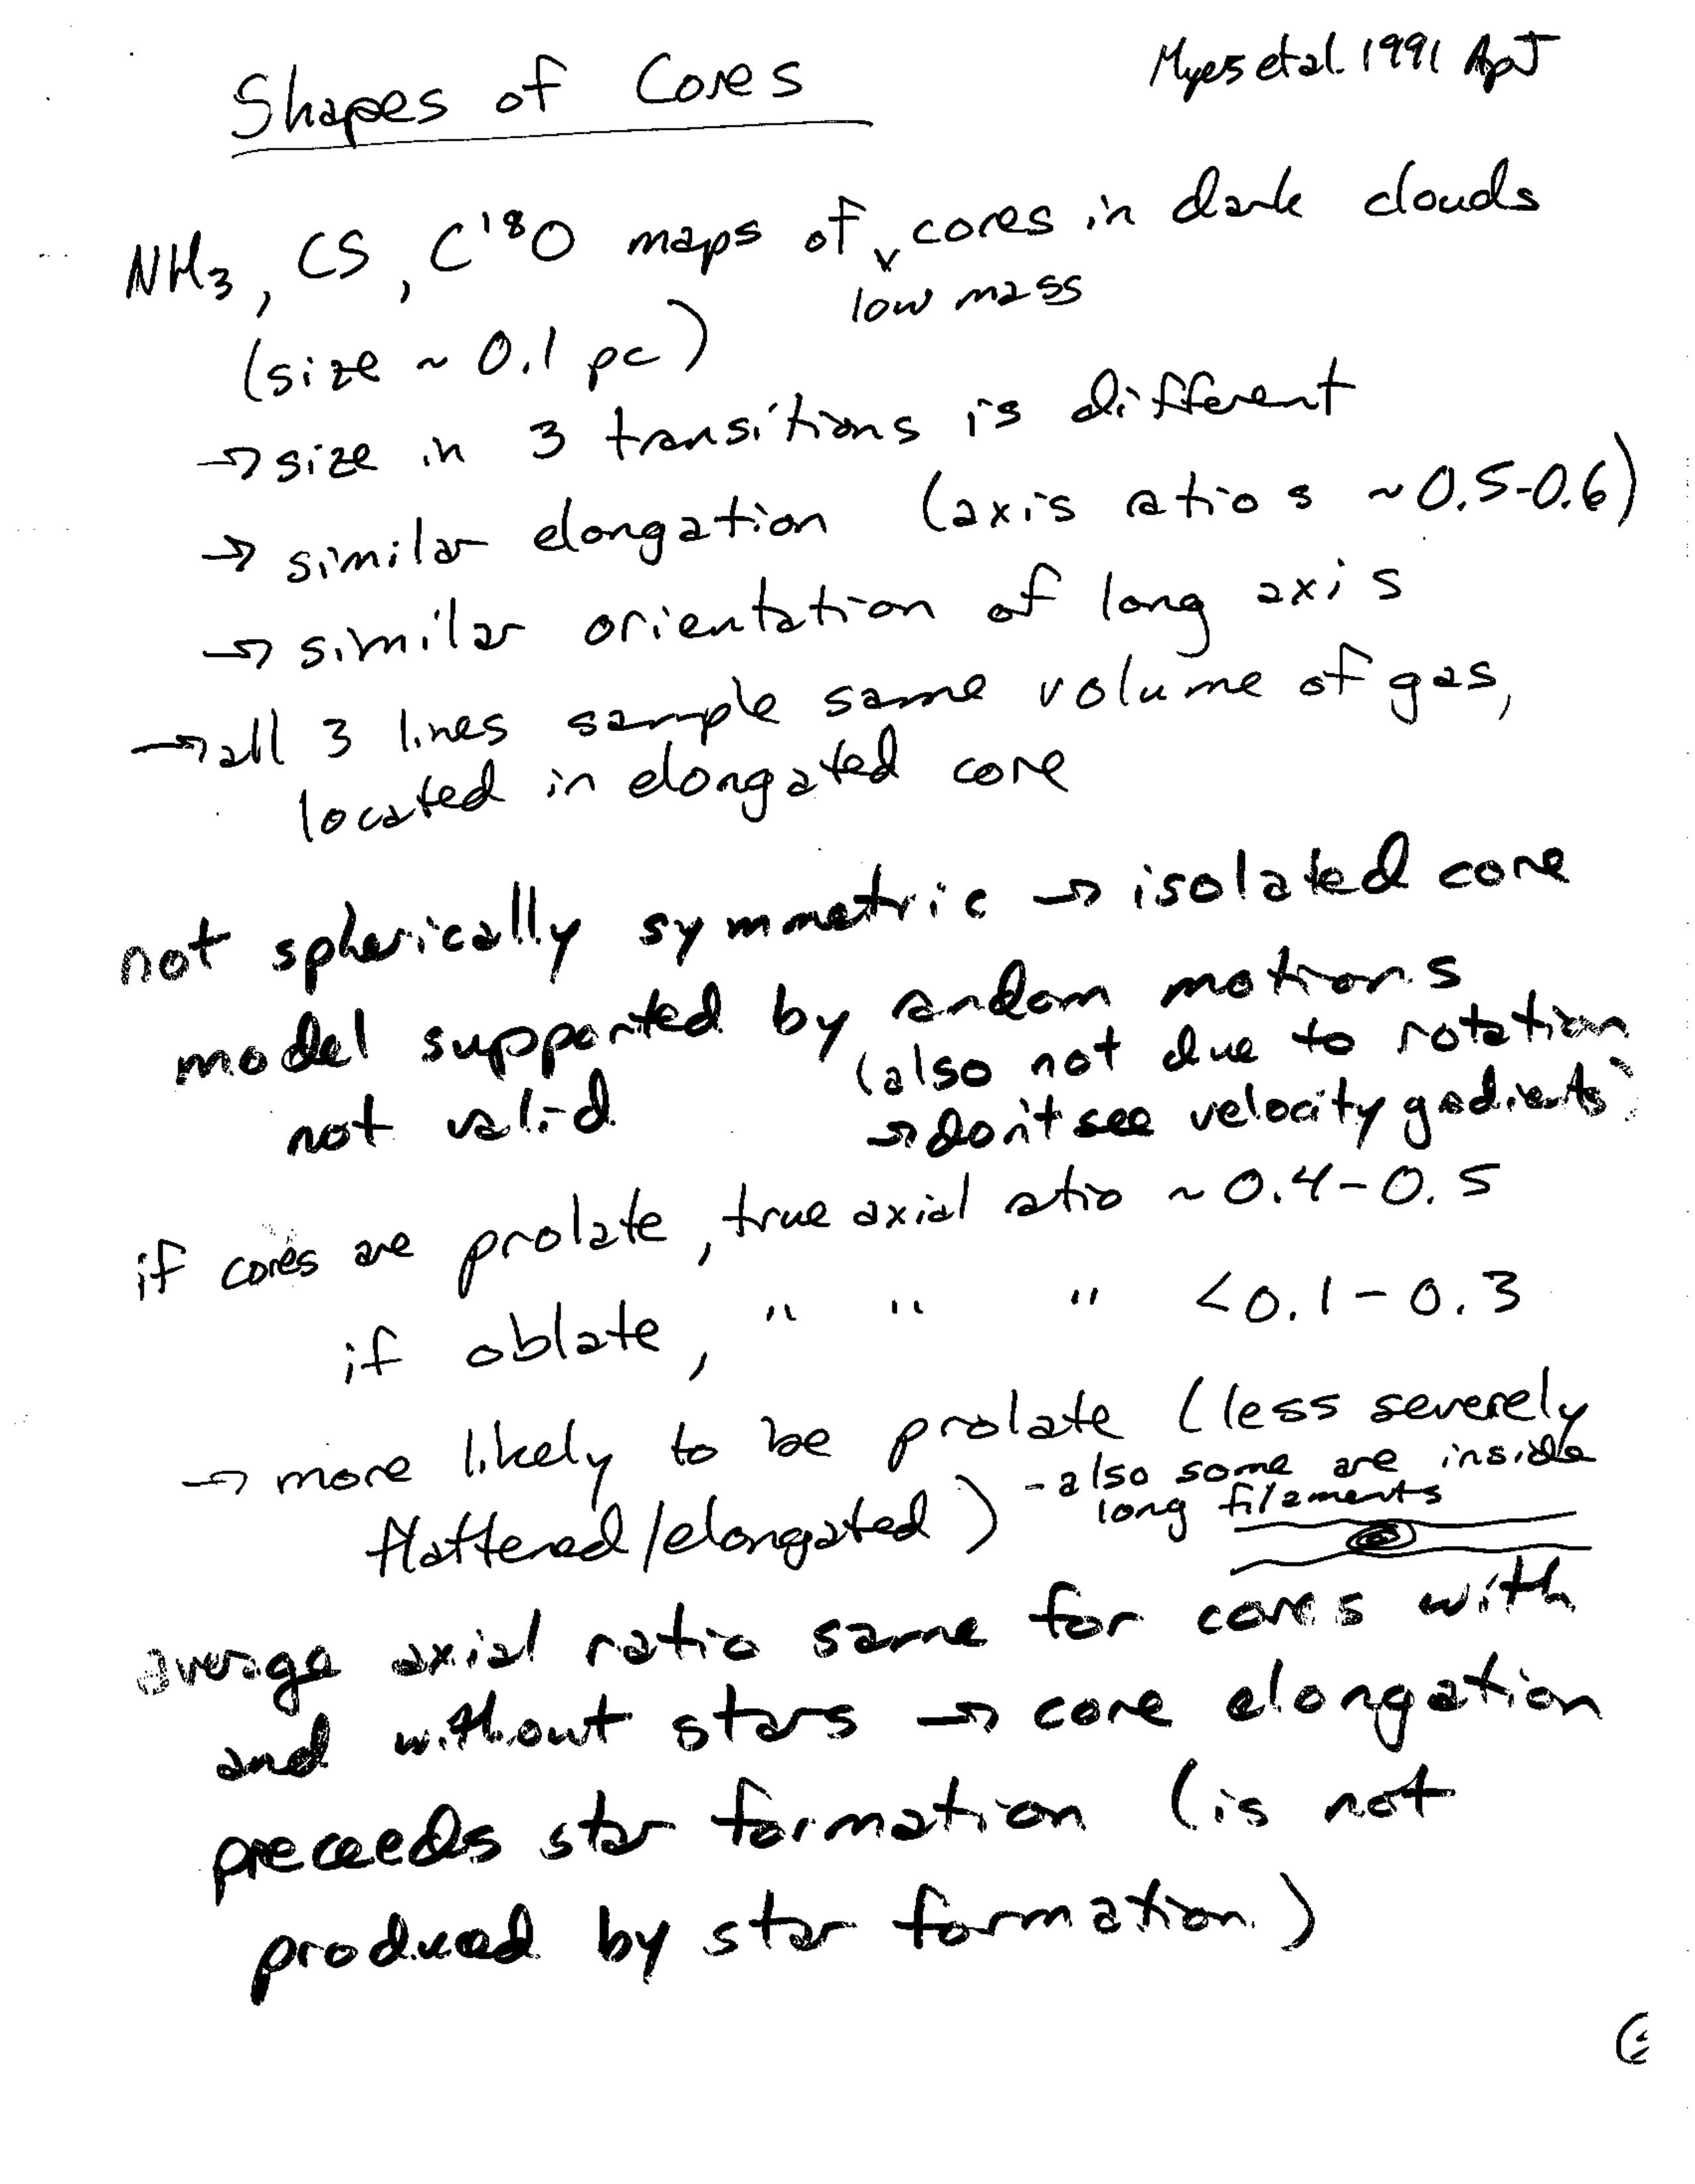 Shapes of Cores
Myers et al. 1991 ApJ
NH₃, CS, C¹⁸O maps of ᵥ cores in dark clouds
low mass
(size ~ 0.1 pc)
→ size in 3 transitions is different
→ similar elongation (axis ratios ~0.5-0.6)
→ similar orientation of long axis
→ all 3 lines sample same volume of gas,
located in elongated core
not spherically symmetric → isolated core
model supported by random motions
not valid
(also not due to rotation
→ don't see velocity gradients)
if cores are prolate, true axial ratio ~ 0.4-0.5
if oblate, " " " <0.1-0.3
→ more likely to be prolate (less severely
flattened/elongated)
- also some are inside
long filaments
average axial ratio same for cores with
and without stars → core elongation
preceeds star formation (is not
produced by star formation.)